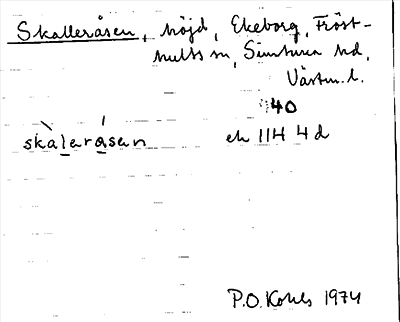 Skalleråsen, höjd, Ekeborg, Fröst-
hults sn, Simtuna hd,
Västm. l.
40
skàlerásan
ek 114 4d
P.O. Kohls 1974